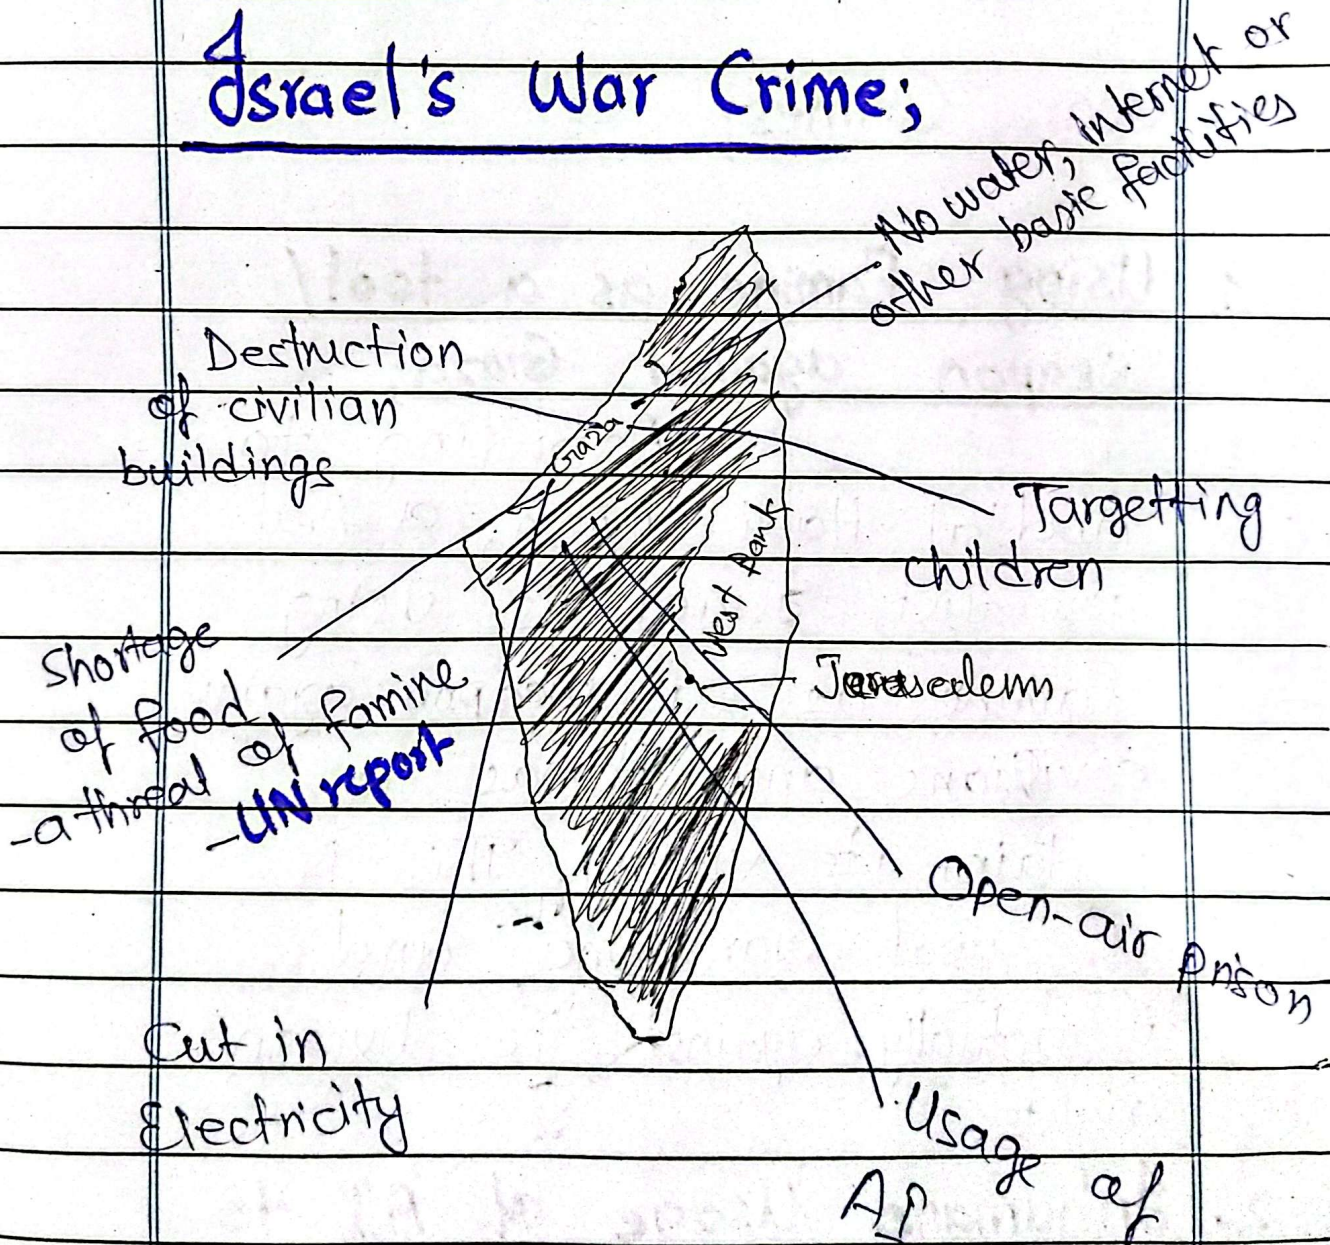 Israel's War Crime;
No water, internet or
other basic facilities
Destruction
of civilian
buildings
Gaza
Targetting
children
West Bank
Shortage
of food
-a threat of famine
-UN report
Open-air prison
Cut in
Electricity
Usage of
AI